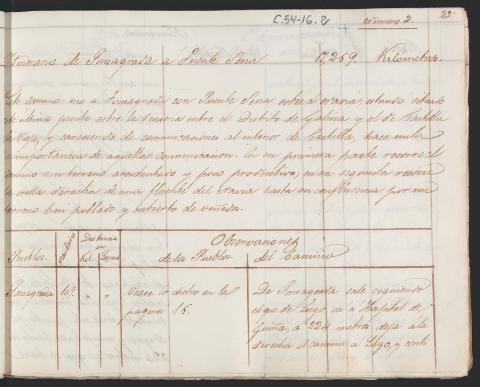 C.54-16.2
Número 2.
23
Itinerario de Fonsagrada á Puente Sena 17,269. Kilometros.
Este camino une á Fonsagrada con Puente Sena sobre el Navia; estando situado
este ultimo punto sobre la frontera entre el Distrito de Galicia y el de Castilla
la Vieja, y careciendo de comunicaciones al interior de Castilla, hace nula
la importancia de aquella comunicacion. En su primera parte recorre el
camino un terreno accidentado y poco productivo; en su segunda recorre
la orilla derecha de un afluente del Navia hasta su confluencia por un
terreno bien poblado y cubierto de viñedos.
Pueblos. Vecindario Distancia en Kil. Leguas Observaciones
de los Pueblos. del Camino
Fonsagrada 109. " " Vease lo dicho en la
pagina 16.
De Fonsagrada sale siguiendo
el que de Lugo, va á Hospital de
Guiña, á 224 metros deja á la
derecha el camino á Lugo, y